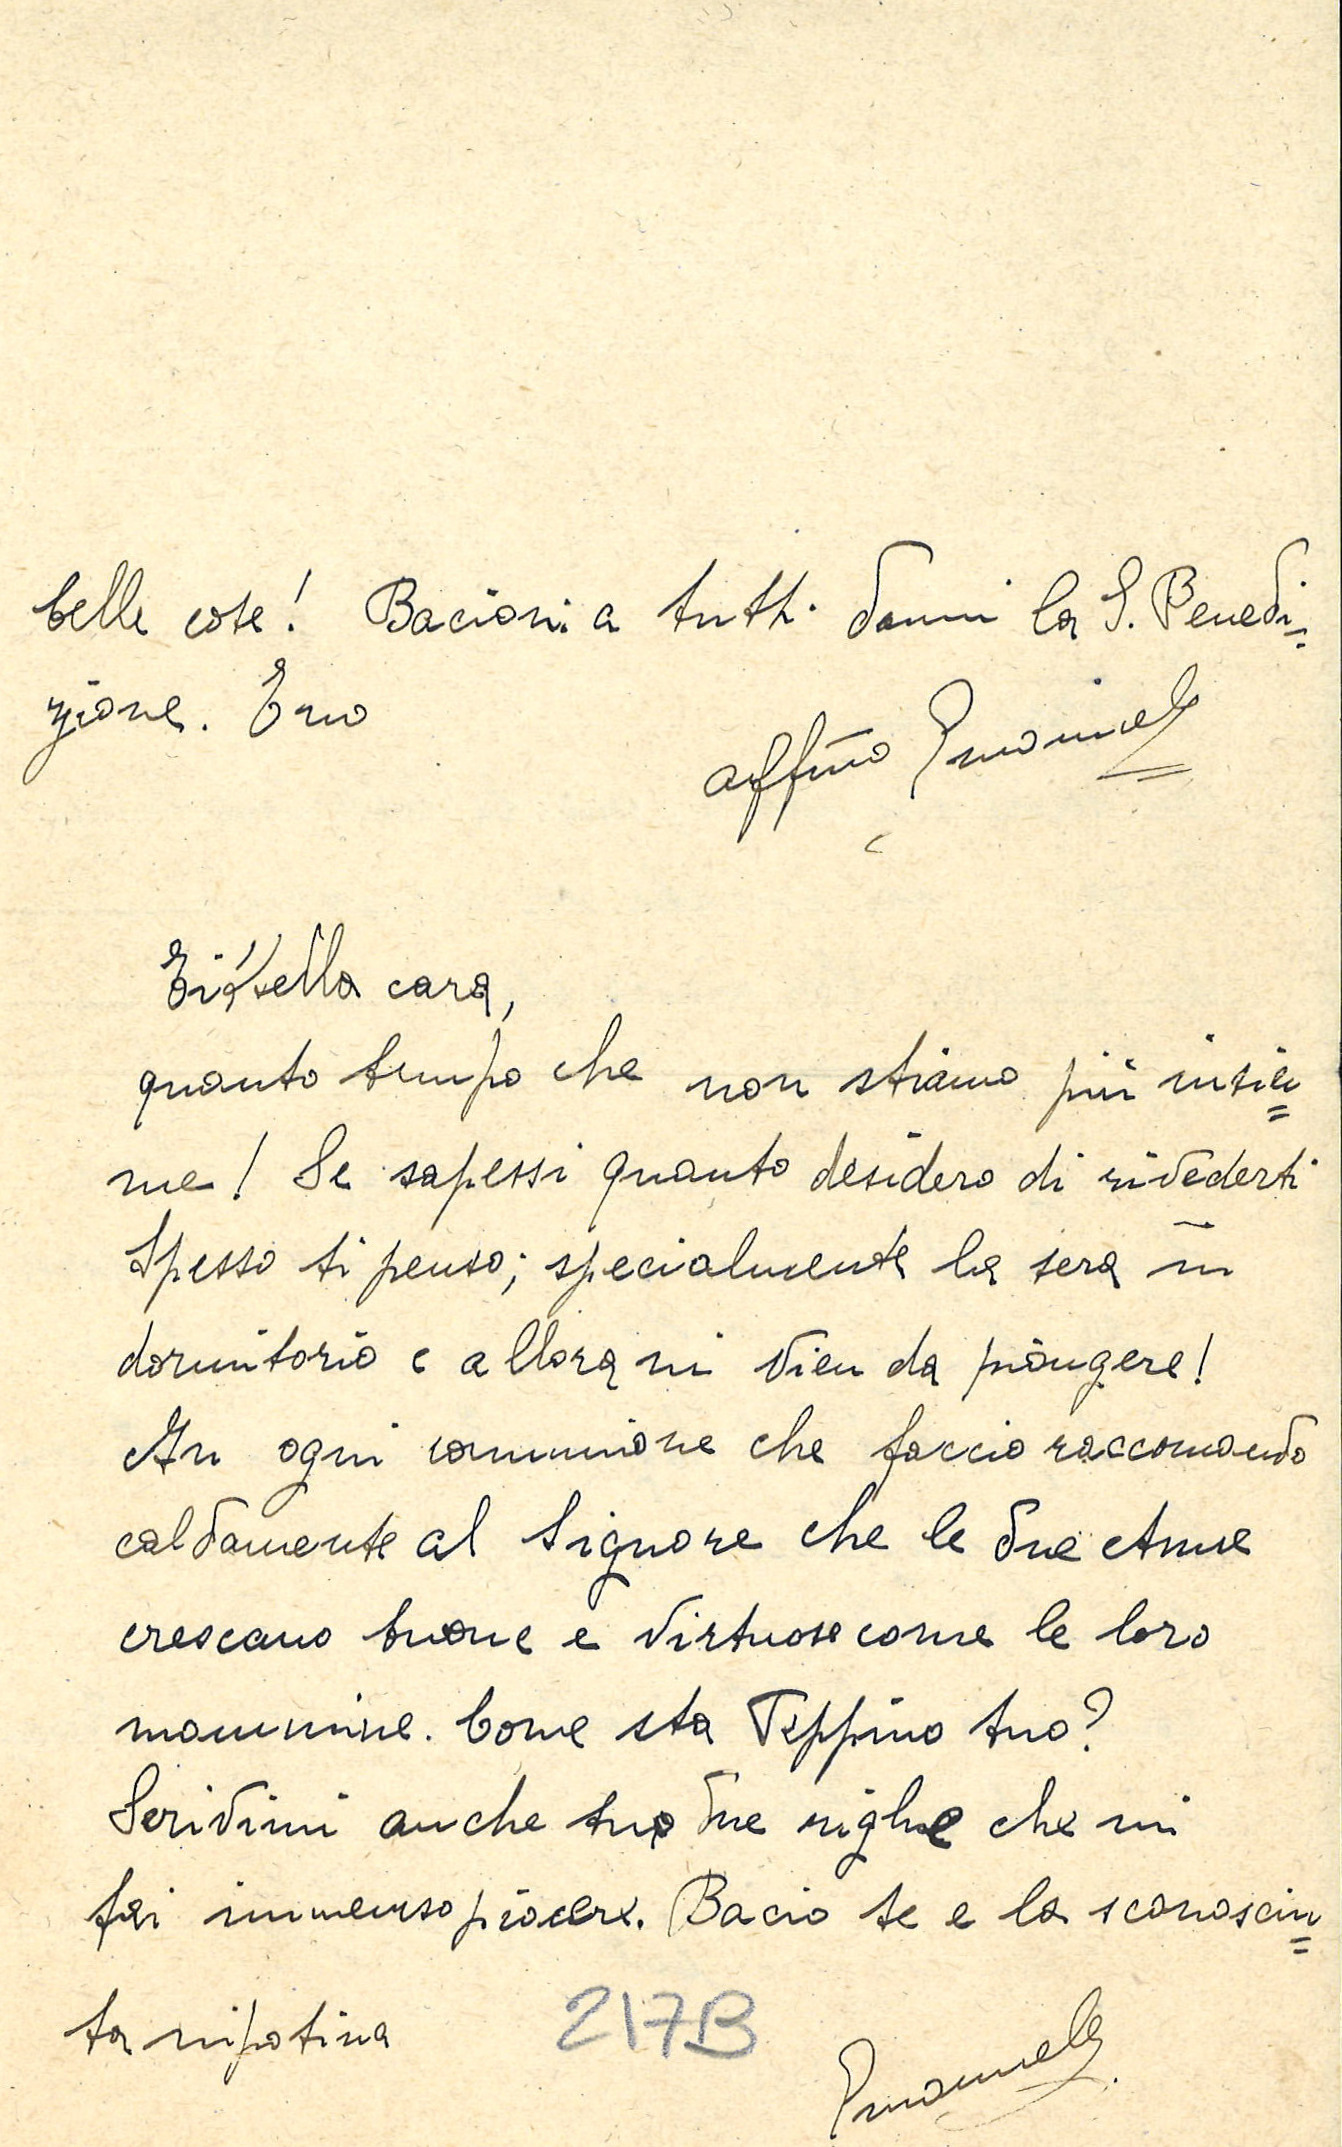 belle cose! Bacioni a tutti dammi la S. Benedi=
zione. Tuo
affmo Emanuele
cara,
quanto tempo che non stiamo più insie=
me! Se sapessi quanto desidero di rivederti
Spesso ti penso; specialmente la sera in
dormitorio e allora mi vien da piangere!
In ogni comunione che faccio raccomando
caldamente al Signore che le due Anne
crescano buone e virtuose come le loro
mammine. Come sta Peppino tuo?
Scrivimi anche tu due righe che mi
fai immenso piacere. Bacio te e la sconosciu=
ta nipotina
217B
Emanuele